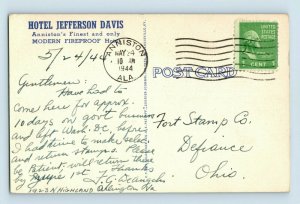 HOTEL JEFFERSON DAVIS
Anniston's Finest and only
MODERN FIREPROOF
5/24/44
ANNISTON
MAY 24
10 AM
1944
ALA.
UNITED STATES
POSTAGE
1 CENT
POST CARD
Gentlemen:
Have had to
come here for approx.
10 days on govt business
and left Wash. D.C. before
I had time to make selec.
and return stamps. Please
be Patient. will return them
by June 1st. Thanks
1923 N HIGHLAND Arlington Va
Fort Stamp Co.
Defiance
Ohio.